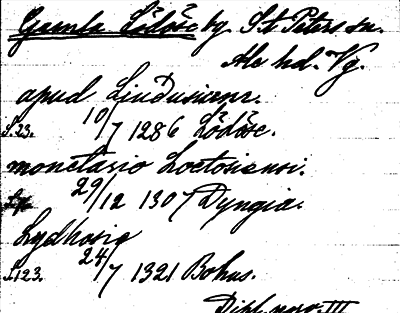 Gamla Lödöse by. S:t Peters sn.
Ale hd. Vg.
apud Liuðusiænr.
S. 23. 10/7 1286 Lödöse.
monetario Loetosiensi.
29/12 1307 Dyngia.
Lydhosig
S. 123. 24/7 1321 Bohus.
Dipl. norv. III